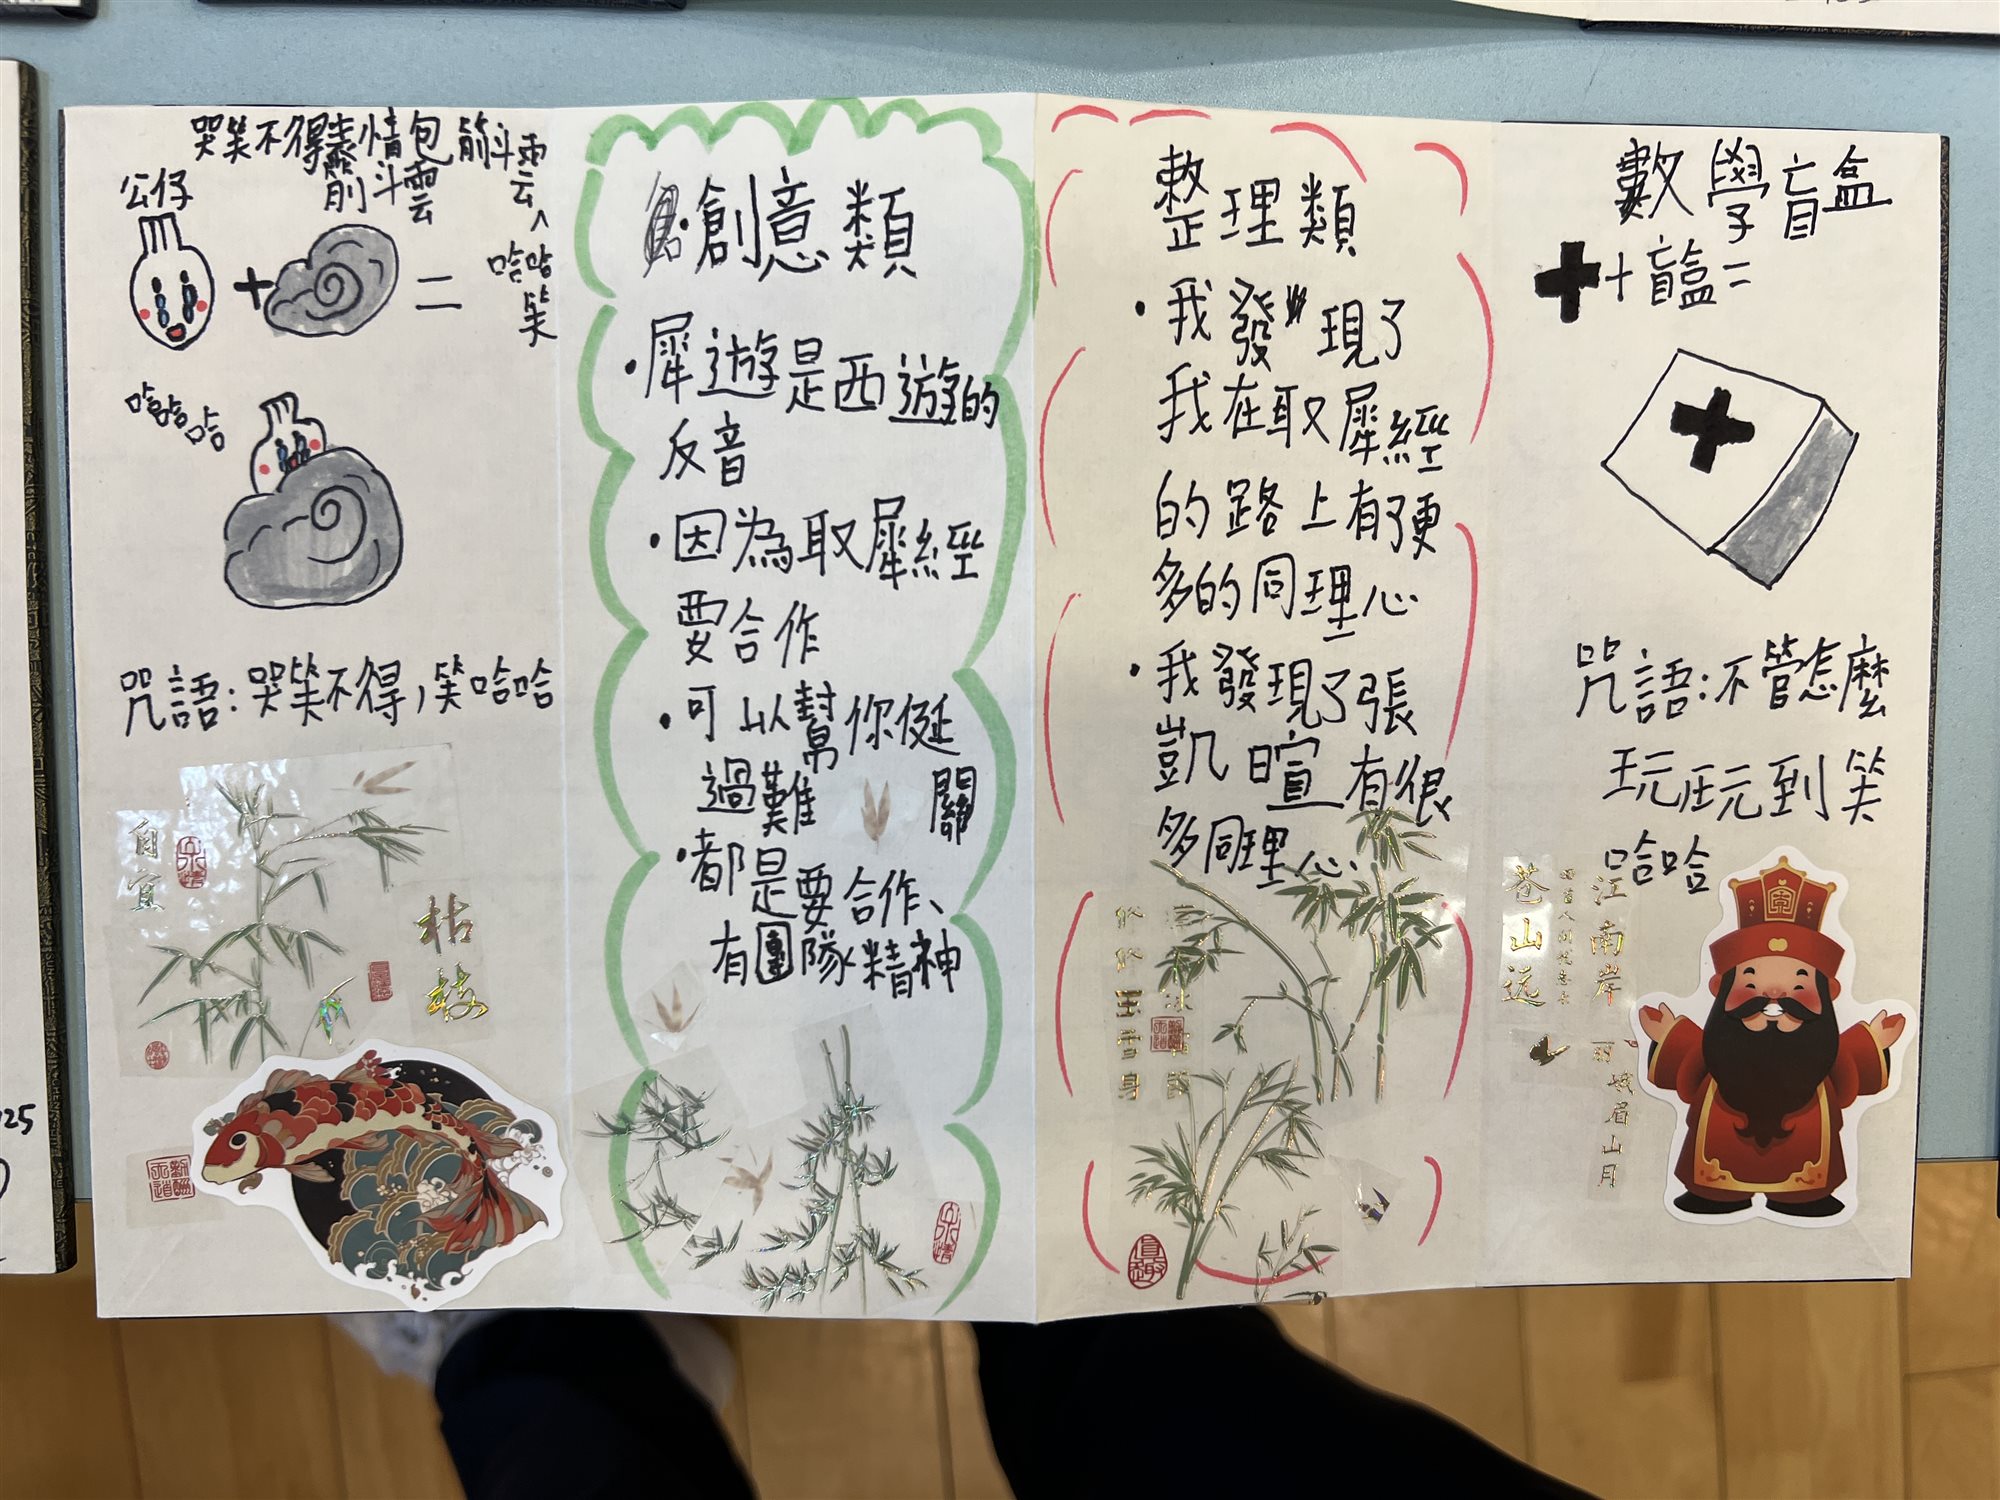 哭笑不得表情包筋斗雲
筋斗雲
公仔
哈哈
笑
哈哈哈
咒語:哭笑不得,笑哈哈
自宜
枯枝
創意類
·犀遊是西遊的
反音
·因為取犀經
要合作
·可以幫你挺
過難關
·都是要合作、
有團隊精神
整理類
·我發現了
我在取犀經
的路上有了更
多的同理心
·我發現了張
凱暄有很
多同理心
玉雪身
數學盲盒
+盲盒=
咒語:不管怎麼
玩玩到笑
哈哈
苍山远
江南岸
峨眉山月